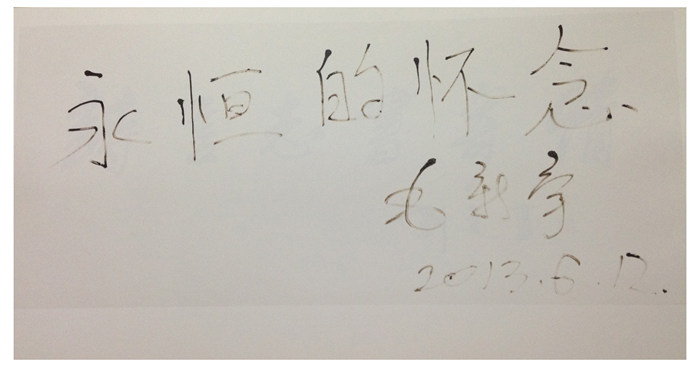 永恒的怀念
毛新宇
2013.6.12.